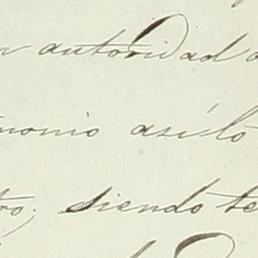 autoridad
monio así lo
tro; siendo te